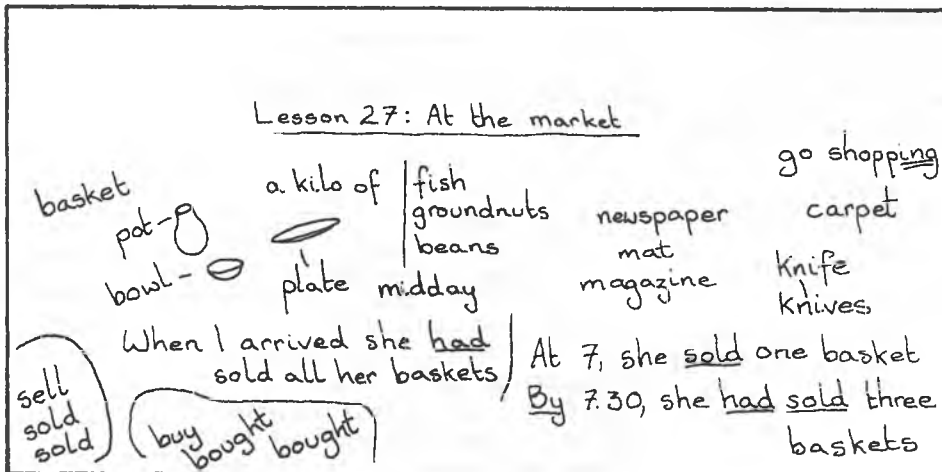 Lesson 27: At the market
go shopping
basket
a kilo of
fish
groundnuts
beans
pot-
bowl-
plate
midday
newspaper
mat
magazine
carpet
Knife
Knives
When I arrived she had
sold all her baskets
At 7, she sold one basket
By 7.30, she had sold three
baskets
sell
sold
sold
buy
bought
bought